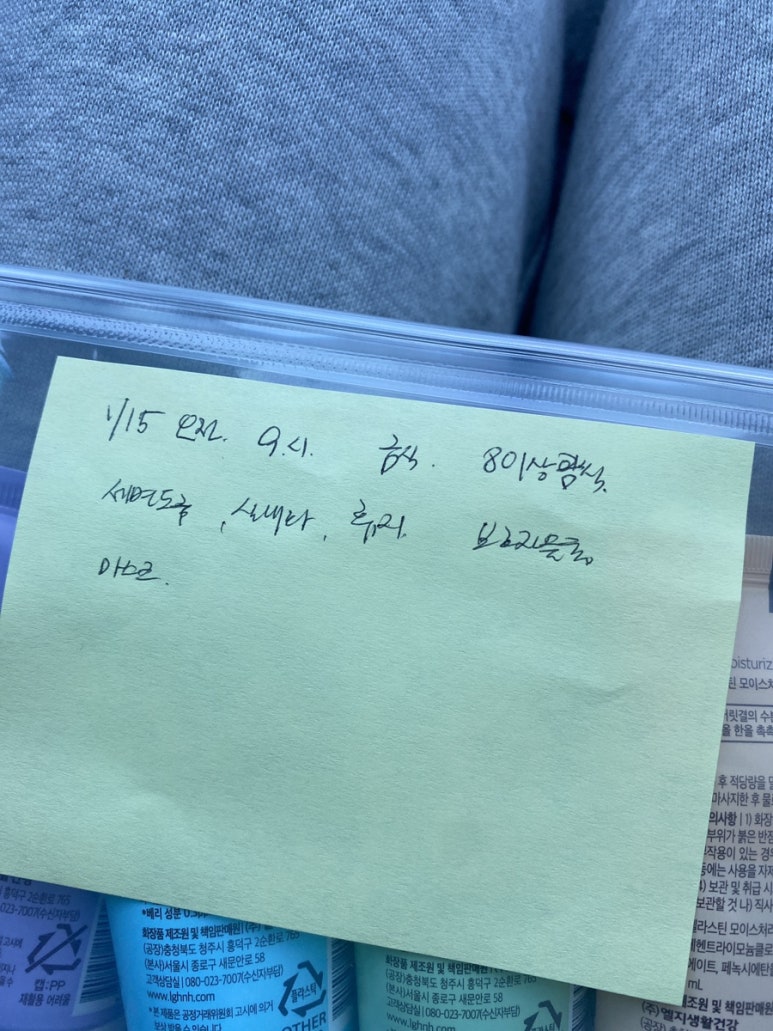 1/15 오전. 9시. 금식. 8이상금식.
세면도구, 실내화, 휴지. 보호자물품
마스크.
oisturiz
틴 모이스처
머릿결의 수
을 한올 촉촉
후 적당량을
마사지한 후 물
의사항 | 1) 화장
부위가 붉은 반점
작용이 있는 경
등에는 사용을 자제
) 보관 및 취급 시
보관할 것 나) 직사
엘라스틴 모이스처
헨트라이모늄클로
에이트, 페녹시에탄
mL
제조원 및 책임판매원
(주)엘지생활건강
(공장)충
흥덕구 2순환로 765
-023-7007(수신자부담)
고시에 의거
캡:PP
재활용 어려움
*베리 성분 0.
화장품 제조원 및 책임판매원 | (주)
(공장)충청북도 청주시 흥덕구 2순환로 765
(본사)서울시 종로구 새문안로 58
고객상담실 | 080-023-7007(수신자부담)
www.lghnh.com
* 본 제품은 공정거래위원회 고시에 의거
보상 받을 수 있습니다.
플라스틱
OTHER
화장품 제조원 및 책임판매원
(공장)충청북도 청주시 흥덕구 2순환로 765
(본사)서울시 종로구 새문안로 58
고객상담실 | 080-023-7007(수신자부담)
www.lghnh.com